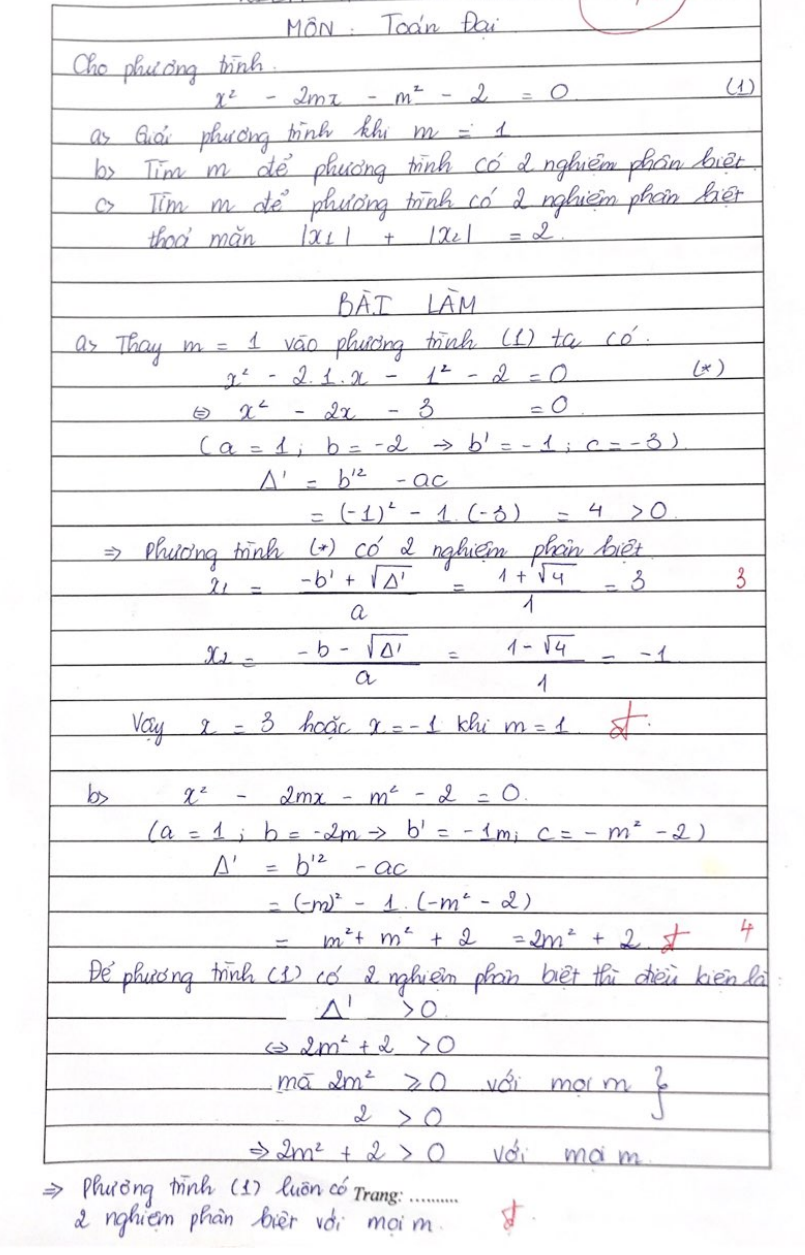 MÔN : Toán Đại
Cho phương trình
x² - 2mx - m² - 2 = 0 (1)
a> Giải phương trình khi m = 1
b> Tìm m để phương trình có 2 nghiệm phân biệt
c> Tìm m để phương trình có 2 nghiệm phân biệt
thoả mãn |x1| + |x2| = 2.
BÀI LÀM
a> Thay m = 1 vào phương trình (1) ta có.
x² - 2.1.x - 1² - 2 = 0 (*)
⇔ x² - 2x - 3 = 0
(a = 1; b = -2 → b' = -1; c = -3)
Δ' = b'² - ac
= (-1)² - 1.(-3) = 4 > 0.
⇒ Phương trình (*) có 2 nghiệm phân biệt
x1 = (-b' + √Δ')/a = (1 + √4)/1 = 3 3
x2 = (-b - √Δ')/a = (1 - √4)/1 = -1
Vậy x = 3 hoặc x = -1 khi m = 1 đ.
b> x² - 2mx - m² - 2 = 0.
(a = 1; b = -2m → b' = -1m; c = -m² - 2)
Δ' = b'² - ac
= (-m)² - 1.(-m² - 2)
= m² + m² + 2 = 2m² + 2. đ 4
Để phương trình (1) có 2 nghiệm phân biệt thì điều kiện là:
Δ' > 0
⇔ 2m² + 2 > 0
mà 2m² ⩾ 0 với mọi m }
2 > 0
⇒ 2m² + 2 > 0 với mọi m
⇒ Phương trình (1) luôn có Trang: ..........
2 nghiệm phân biệt với mọi m. đ.